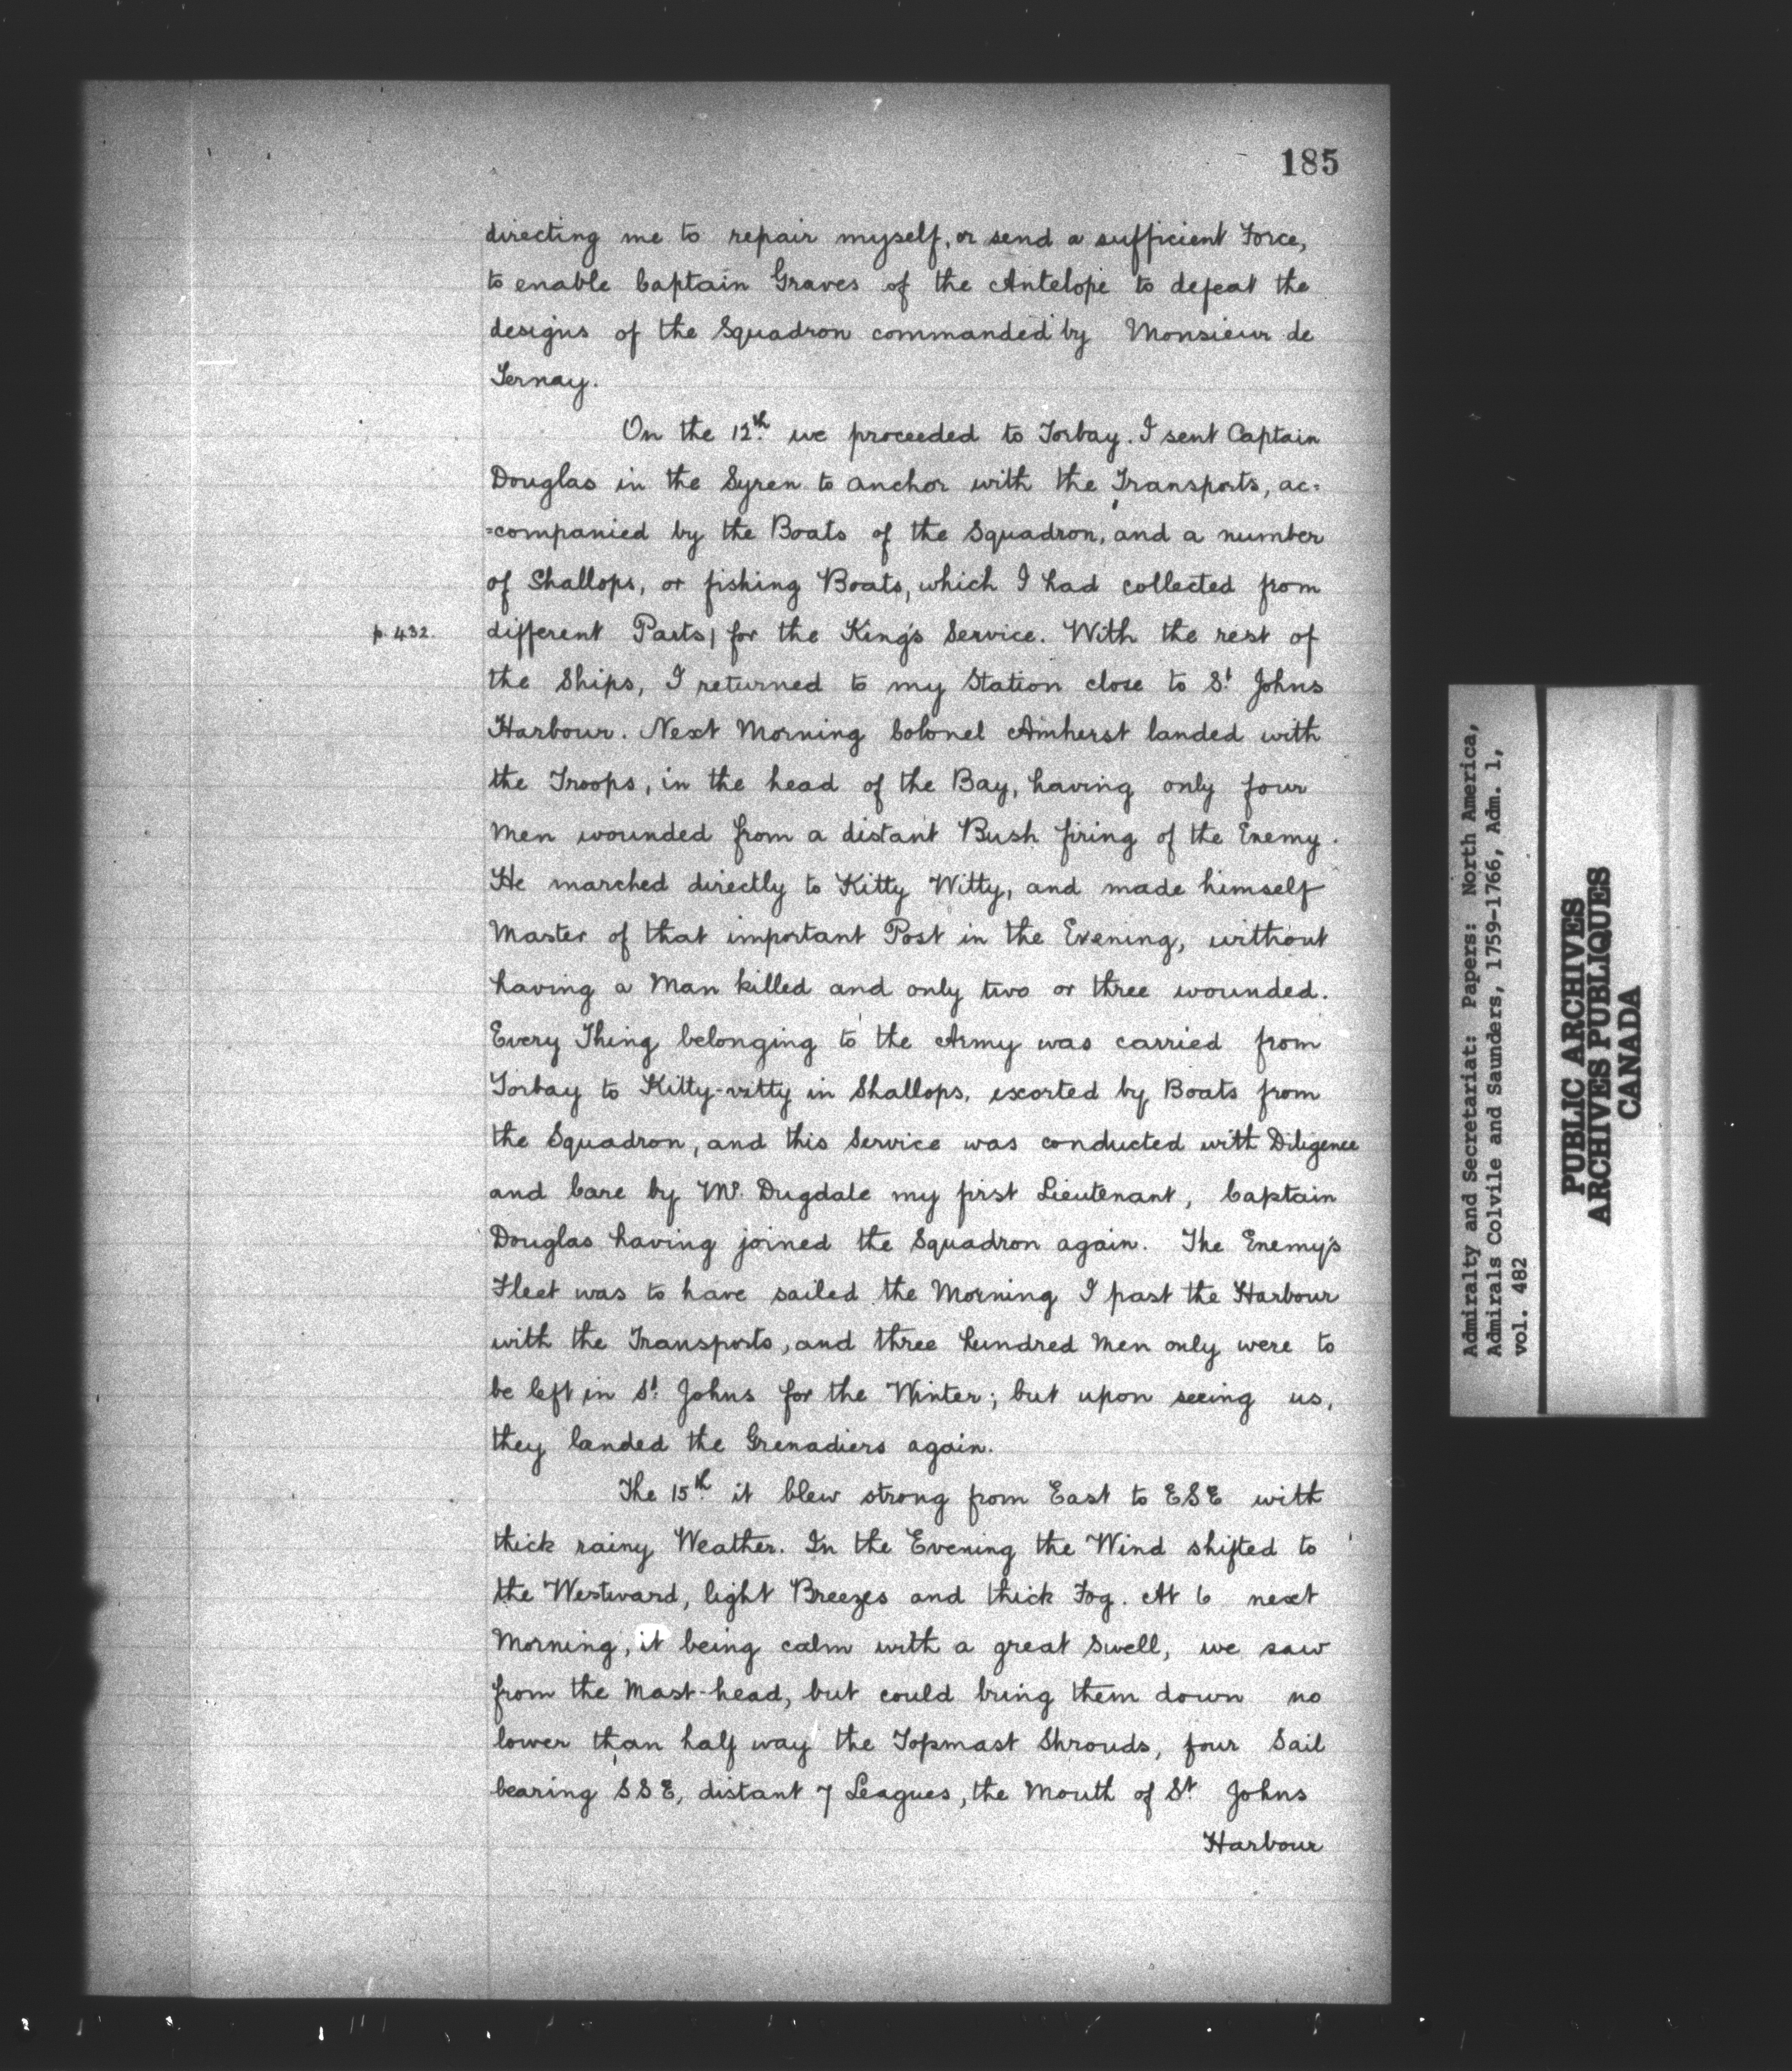 185
directing me to repair myself, or send a sufficient Force,
to enable Captain Graves of the Antelope to defeat the
designs of the Squadron commanded by Monsieur de
Ternay.
On the 12th we proceeded to Torbay. I sent Captain
Douglas in the Syren to anchor with the Transports, ac=
=companied by the Boats of the Squadron, and a number
of Shallops, or fishing Boats, which I had collected from
p. 432.
different Parts| for the King's Service. With the rest of
the Ships, I returned to my Station close to St Johns
Harbour. Next Morning Colonel Amherst landed with
the Troops, in the head of the Bay, having only four
Men wounded from a distant Bush firing of the Enemy.
He marched directly to Kitty Witty, and made himself
Master of that important Post in the Evening, without
having a Man killed and only two or three wounded.
Every Thing belonging to the Army was carried from
Torbay to Kitty-vitty in Shallops, escorted by Boats from
the Squadron, and this Service was conducted with Diligence
and Care by Mr. Dugdale my first Lieutenant, Captain
Douglas having joined the Squadron again. The Enemy's
Fleet was to have sailed the Morning I past the Harbour
with the Transports, and three hundred Men only were to
be left in St. Johns for the Winter; but upon seeing us,
they landed the Grenadiers again.
The 15th it blew strong from East to ESE with
thick rainy Weather. In the Evening the Wind shifted to
the Westward, light Breezes and thick Fog. At 6 next
Morning, it being calm with a great Swell, we saw
from the Mast-head, but could bring them down no
lower than half way the Topmast Shrouds, four Sail
bearing SSE, distant 7 Leagues, the Mouth of St. Johns
Harbour
Admiralty and Secretariat: Papers: North America,
Admirals Colvile and Saunders, 1759-1766, Adm. 1,
vol. 482
PUBLIC ARCHIVES
ARCHIVES PUBLIQUES
CANADA